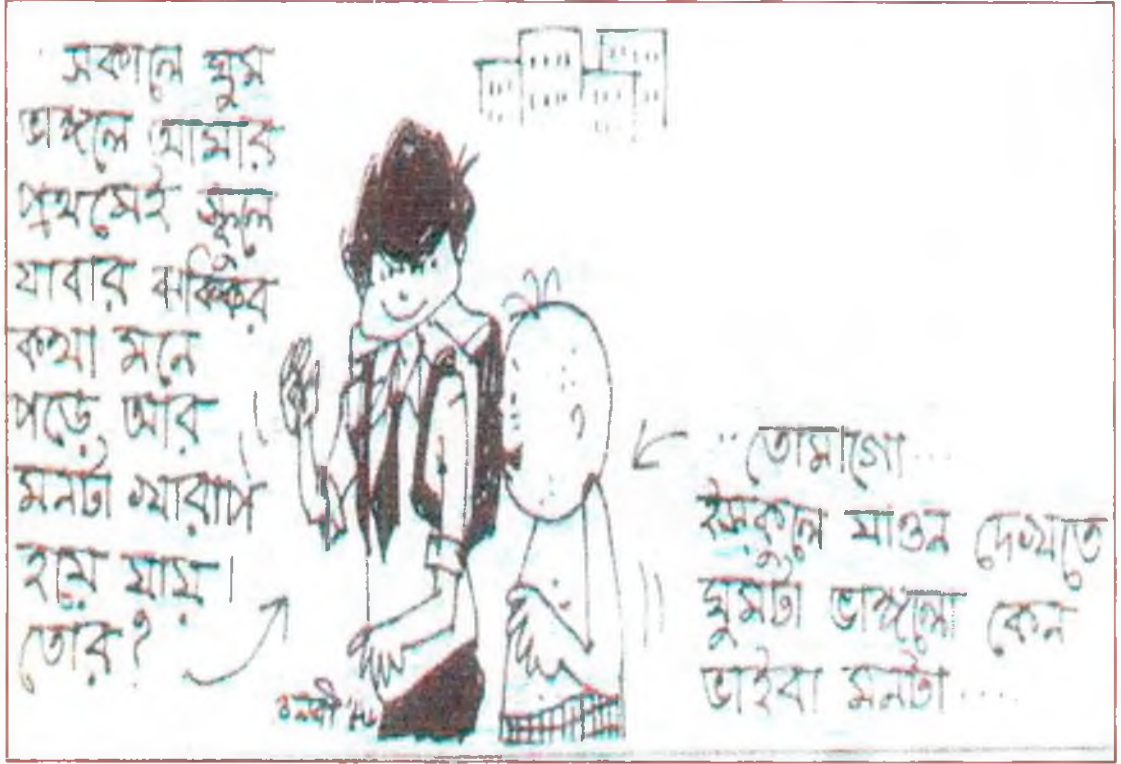 সকালে ঘুম
ভাঙ্গলে আমার
প্রথমেই স্কুলে
যাবার ঝক্কির
কথা মনে
পড়ে আর
মনটা খারাপ
হয়ে যায়।
তোর?
তোমাগো....
ইস্কুলে যাওন দেখতে
ঘুমটা ভাঙ্গলো কেন
ভাইবা মনটা....